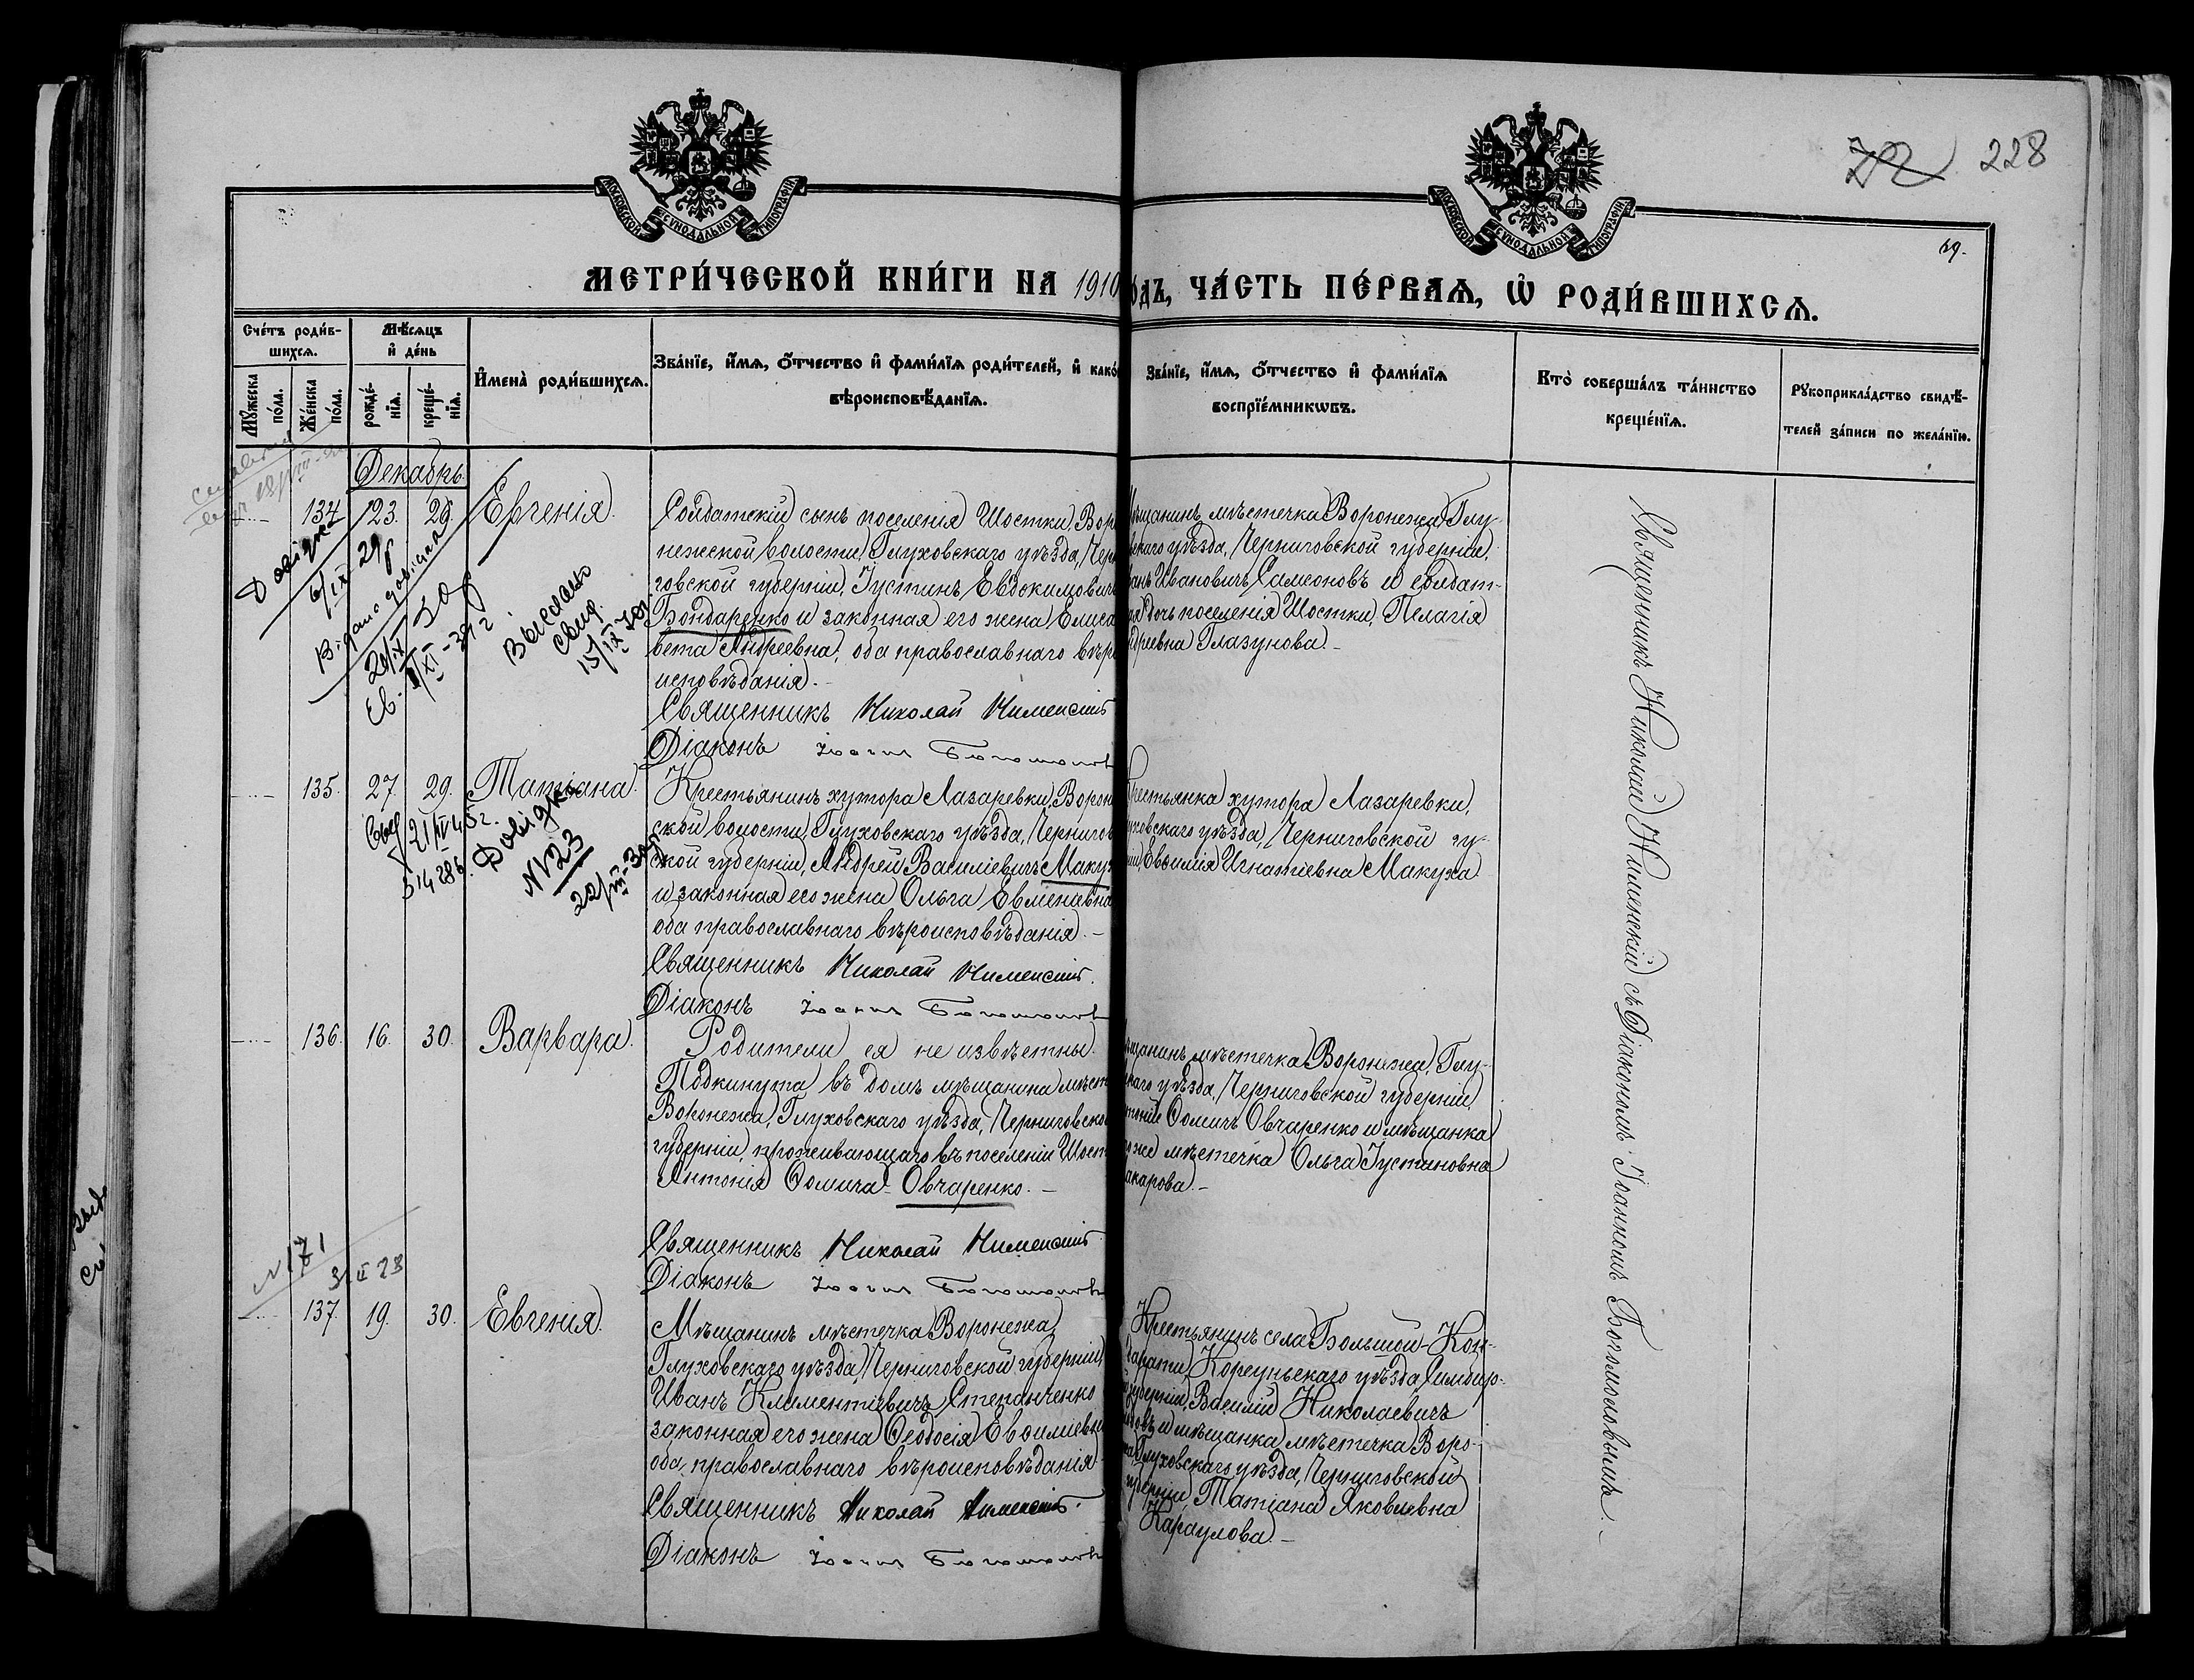 228
29.
МОСКОВСКОЙ СѴНОДАЛЬНОЙ ТИПОГРАФІИ
МОСКОВСКОЙ СѴНОДАЛЬНОЙ ТИПОГРАФІИ
МЕТРИ́ЧЕСКОЙ КНИ́ГИ НА 1910
ОДЪ, ЧА́СТЬ ПЕ́РВАѦ, Ѡ҆ РОДИ́ВШИХСѦ.
Сче́тъ роди́в-
шихсѧ.
Мꙋ́жеска
по́ла.
Же́нска
по́ла.
Мѣ́сѧцъ
и҆ де́нь
рожде́-
нїѧ.
креще́-
нїѧ.
И҆мена̀ роди́вшихсѧ.
Зва́нїе, и҆́мѧ, ѻ҆́тчество и҆ фами́лїѧ роди́телей, и҆ како́
вѣроисповѣ́данїѧ.
Зва́нїе, и҆́мѧ, ѻ҆́тчество и҆ фами́лїѧ
воспрїе́мникѡвъ.
Кто̀ соверша́лъ та́инство
креще́нїѧ.
Рꙋкоприкла́дство свидѣ́-
телей за́писи по жела́нїю.
Декабрь.
134 23. 29. Евгенія.
Солдатскій сынъ поселенія Шостки, Воро
нежской волости, Глуховскаго уѣзда, Черн
говской губерніи, Іустинъ Евдокимовичъ
Бондаренко и законная его жена Елиса
вета Андреевна, оба православнаго вѣро
исповѣданія.
Священникъ Николай
Діаконъ
ѣщанинъ мѣстечка Воронежа, Глу-
скаго уѣзда, Черниговской губерніи,
анъ Ивановичъ Самсоновъ и солдат-
ая дочь поселенія Шостки, Пелагія
дреевна Глазунова.
Довідка
6/IX 29 р
Видано
20/IX 30 р
Выслано
свид.
135. 27. 29. Татіана.
Крестьянинъ хутора Лазаревки, Ворон
ской волости, Глуховскаго уѣзда, Чернигов
ской губерніи, Андрей Василіевичъ Маку
и законная его жена Ольга Евменіевна
оба православнаго вѣроисповѣданія.
Священникъ Николай
Діаконъ
Крестьянка хутора Лазаревки,
уховскаго уѣзда, Черниговской гу-
ніи, Евѳимія Игнатіевна Макуха.
Довідка
N 123
136. 16. 30. Варвара.
Родители ея не извѣстны.
Подкинута въ домъ мѣщанина мѣст
Воронежа, Глуховскаго уѣзда, Черниговско
губерніи, проживающаго въ поселеніи Шост
Антонія Ѳомича Овчаренко.
Священникъ Николай
Діаконъ
щанинъ мѣстечка Воронежа, Глу-
скаго уѣзда, Черниговской губерніи,
тоній Ѳомичъ Овчаренко и мѣщанка
о же мѣстечка Ольга Іустиновна
акарова.
137. 19. 30. Евгенія.
Мѣщанинъ мѣстечка Воронежа,
Глуховскаго уѣзда, Черниговской губерніи,
Иванъ Климентіевичъ Степанченко
законная его жена Ѳеодосія Евѳиміевн
оба православнаго вѣроисповѣданія.
Священникъ Николай
Діаконъ
Крестьянинъ села Большой-Кон-
дарати, Корсуньскаго уѣзда, Симбир-
губерніи, Василій Николаевичъ
довъ и мѣщанка мѣстечка Воро-
Глуховскаго уѣзда, Черниговской
губерніи, Татіана Яковлевна
Караулова.
Священникъ Николай съ Діакономъ Іоанномъ Богомоловымъ.